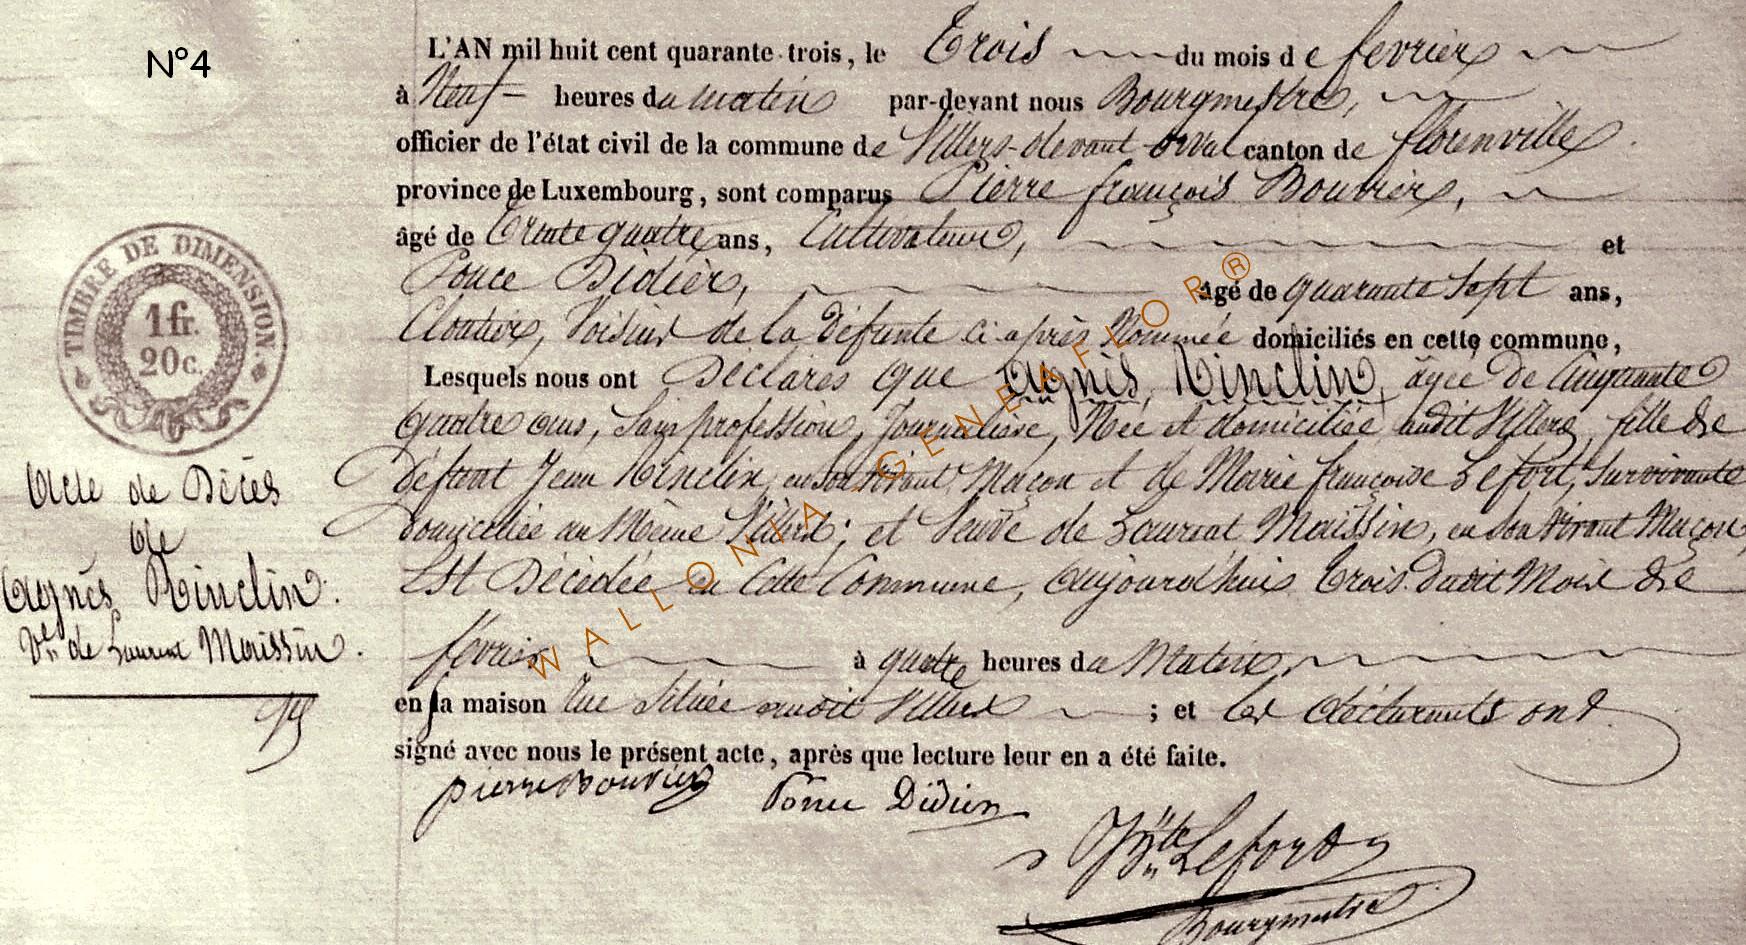 N°4
L'AN mil huit cent quarante trois, le Trois du mois de fevrier
à Neuf heures du matin par-devant nous Bourgmestre,
officier de l'état civil de la commune de Villers-devant-orval canton de florenville
province de Luxembourg, sont comparus Pierre françois Bouvier,
âgé de Trente quatre ans, Cultivateur, et
Ponce Didier, âgé de quarante Sept ans,
Cloutier, Voisins de la Défunte ci-après Nommée domiciliés en cette commune,
Lesquels nous ont Déclarés que Agnès Rinclin, agée de Cinquante
quatre ans, Sans profession, Journalière, Née et domiciliée audit Villers, fille de
défunt Jean Rinclin, en Son vivant Maçon et de Marie françoise Lefort, Survivante
domiciliée au Même Villers; et Veuve de Laurent Maissin, en Son Vivant Maçon,
Est Décédée en Cette Commune, aujourd'huis Trois dudit Mois de
fevrier à quatre heures du Matin,
en sa maison rue Située audit Villers ; et les déclarants ont
signé avec nous le présent acte, après que lecture leur en a été faite.
pierre Bouvier Ponce Didier
Lefort
Bourgmestre
TIMBRE DE DIMENSION.
1 fr.
20 c.
Acte de Décès
de
Agnès Rinclin.
Ve de Laurent Maissin.
WALLONIA GENEAFLOR®